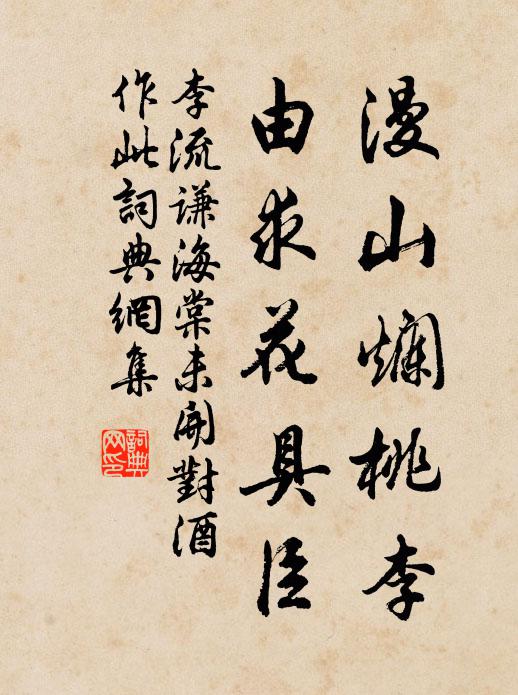 漫山爛桃李
由求花具臣
李流谦海棠未開對酒
作此詞典網集
詞典
网印